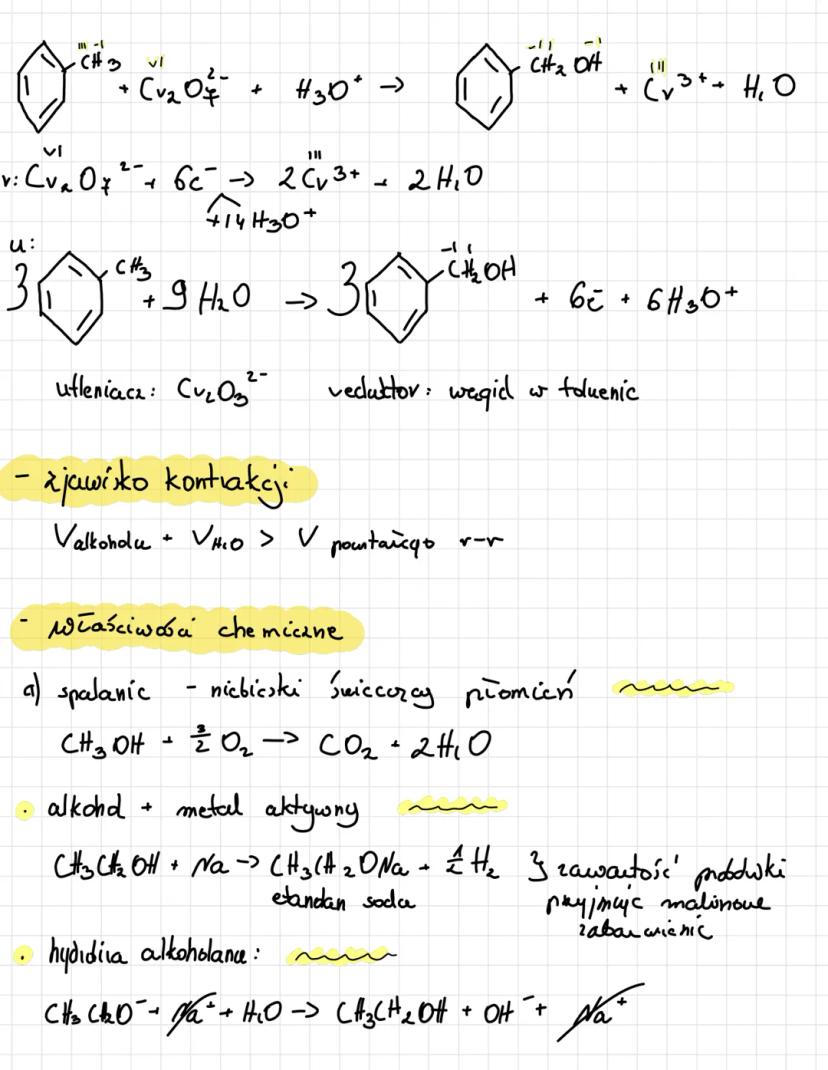 III -I
CH3 + Cr2O7 2- + H3O+ → CH2OH + Cr3+ + H2O
VI -II -I III
r: Cr2O7 2- + 6e- → 2Cr3+ + 2H2O
VI III
+14H3O+
u:
3 CH3 + 9H2O → 3 CH2OH + 6e- + 6H3O+
-II
utleniacz: Cr2O3 2- reduktor: węgiel w toluenie
- zjawisko kontrakcji
Valkoholu + VH2O > V powstałego r-r
- właściwości chemiczne
a) spalanie - niebieski świecący płomień
CH3OH + 3/2 O2 → CO2 + 2H2O
• alkohol + metal aktywny
CH3CH2OH + Na → CH3CH2ONa + 1/2 H2 } zawartość probówki
etanolan sodu przyjmuje malinowe
zabarwienie
• hydroliza alkoholanu:
CH3CH2O- + Na+ + H2O → CH3CH2OH + OH- + Na+